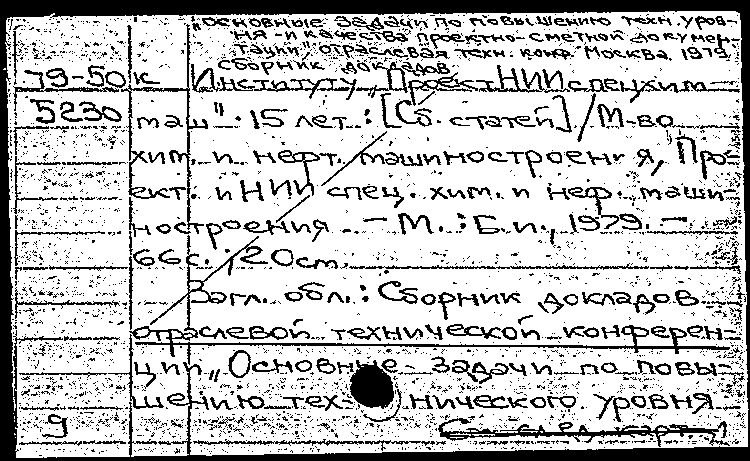 „Основные задачи по повышению техн. уров-
ня и качества проектно-сметной докумен-
тации" отраслевая техн. конф. Москва. 1979.
Сборник докладов
79-50к Институту „ПроектНИИспецхим-
5230 маш". 15 лет. : [Сб. статей] / М-во
хим. и нефт. машиностроения, Про-
ект. и НИИ спец. хим. и неф. маши-
ностроения. - М. : Б.и., 1979. -
66с. ; 20 см.
Загл. обл. : Сборник докладов
отраслевой технической конферен-
ции „Основные задачи по повы-
шению тех- нического уровня
9 См след карт.